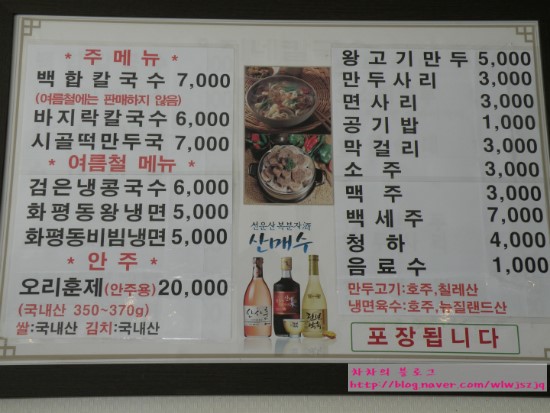 * 주 메 뉴 *
백 합 칼 국 수 7,000
(여름철에는 판매하지 않음)
바 지 락 칼 국 수 6,000
시 골 떡 만 두 국 7,000
* 여 름 철 메 뉴 *
검 은 냉 콩 국 수 6,000
화 평 동 왕 냉 면 5,000
화평동비빔냉면 5,000
* 안 주 *
오리훈제(안주용) 20,000
(국내산 350~370g)
쌀:국내산 김치:국내산
선운산 복분자酒
산매수
왕 고 기 만 두 5,000
만 두 사 리 3,000
면 사 리 3,000
공 기 밥 1,000
막 걸 리 3,000
소 주 3,000
맥 주 3,000
백 세 주 7,000
청 하 4,000
음 료 수 1,000
만두고기:호주,칠레산
냉면육수:호주,뉴질랜드산
포 장 됩 니 다
차차의 블로그
http://blog.naver.com/wlwjszjq